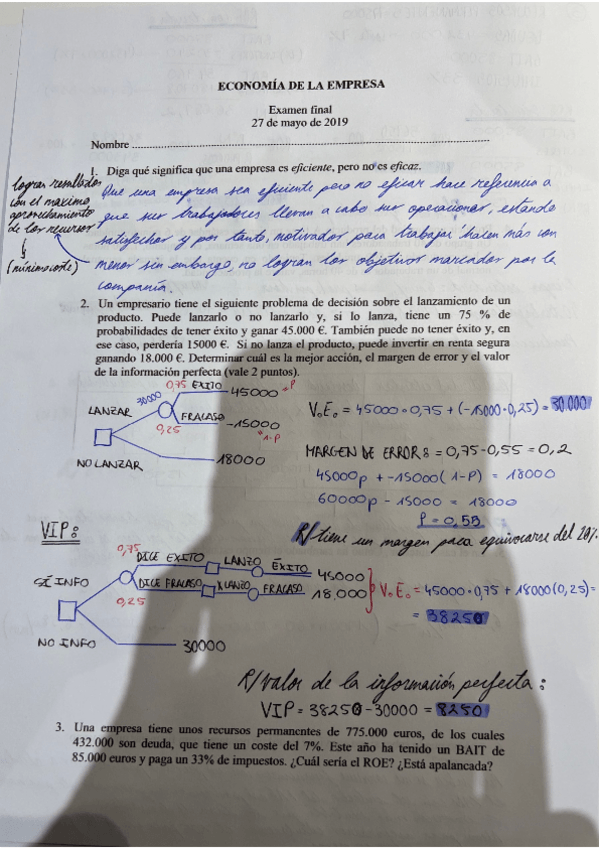 ECONOMÍA DE LA EMPRESA
Examen final
27 de mayo de 2019
Nombre
1. Diga qué significa que una empresa es eficiente, pero no es eficaz.
lograr resultados
con el máximo
aprovechamiento
de los recursos
(mínimo coste)
Que una empresa sea eficiente pero no eficaz hace referencia a
que sus trabajadores llevan a cabo sus operaciones, estando
satisfechos y por tanto, motivados para trabajar hacen más con
menos sin embargo, no logran los objetivos marcados por la
compañía.
2. Un empresario tiene el siguiente problema de decisión sobre el lanzamiento de un
producto. Puede lanzarlo o no lanzarlo y, si lo lanza, tiene un 75 % de
probabilidades de tener éxito y ganar 45.000 €. También puede no tener éxito y, en
ese caso, perdería 15000 €. Si no lanza el producto, puede invertir en renta segura
ganando 18.000 €. Determinar cuál es la mejor acción, el margen de error y el valor
de la información perfecta (vale 2 puntos).
LANZAR 30000 0,75 ÉXITO 45000 P
0,25 FRACASO -15000 1-P
NO LANZAR 18000
V.E. = 45000·0,75 + (-15000·0,25) = 30.000
MARGEN DE ERROR: = 0,75-0,55 = 0,2
45000p + -15000(1-P) = 18000
60000p - 15000 = 18000
P = 0,55
R/ tiene un margen para equivocarse del 20%
VIP:
SÍ INFO 0,75 DICE ÉXITO LANZO ÉXITO 45000
0,25 DICE FRACASO X LANZO FRACASO 18,000
V.E. = 45000·0,75 + 18000(0,25) =
= 38250
NO INFO 30000
R/ valor de la información perfecta:
VIP = 38250-30000 = 8250
3. Una empresa tiene unos recursos permanentes de 775.000 euros, de los cuales
432.000 son deuda, que tiene un coste del 7%. Este año ha tenido un BAIT de
85.000 euros y paga un 33% de impuestos. ¿Cuál sería el ROE? ¿Está apalancada?